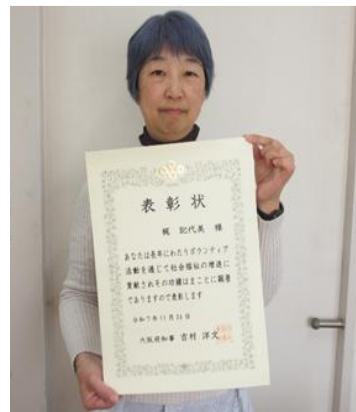 表彰状
梶 記代美 様
あなたは長年にわたりボランティア
活動を通じて社会福祉の増進に
貢献されその功績はまことに顕著
でありますので表彰します
令和7年11月26日
大阪府知事 吉村 洋文